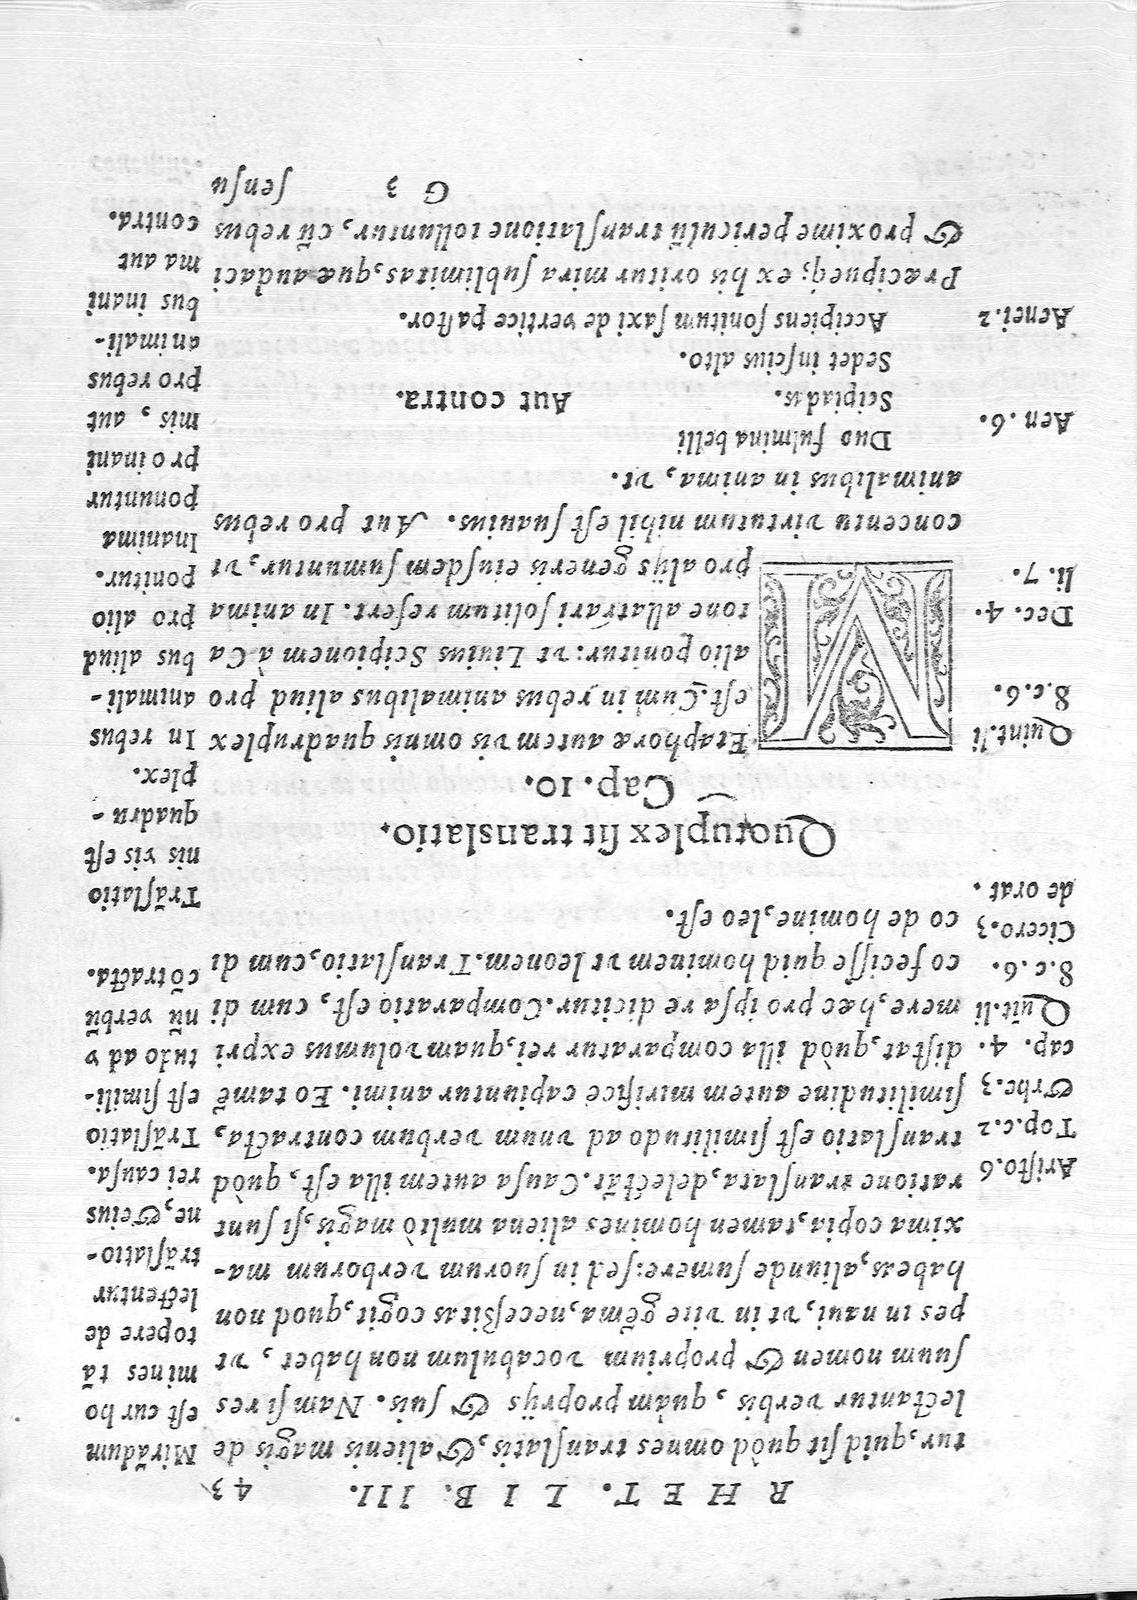 RHET. LIB. III. 43
tur, quid sit quòd omnes translatis, & alienis magis de
lectantur verbis, quàm proprijs & suis. Nam si res
suum nomen & proprium vocabulum non habet, vt
pes in naui, vt in vite gēma, neceßitas cogit, quod non
habeas, aliunde sumere: sed in suorum verborum ma-
xima copia, tamen homines aliena multò magis, si sunt
ratione translata, delectāt. Causa autem illa est, quòd
translatio est similitudo ad vnum verbum contracta,
similitudine autem mirifice capiuntur animi. Eo tamē
distat, quòd illa comparatur rei, quam volumus expri
mere, hæc pro ipsa re dicitur. Comparatio est, cum di
co fecisse quid hominem vt leonem. Translatio, cum di
co de homine, leo est.
Quotuplex sit translatio.
Cap. 10.
MEtaphoræ autem vis omnis quadruplex
est. Cum in rebus animalibus aliud pro
alio ponitur: vt Liuius Scipionem à Ca
tone allatrari solitum refert. In anima
pro alijs generis eiusdem sumuntur, vt
concentu virtutum nihil est suauius. Aut pro rebus
animalibus in anima, vt.
Duo fulmina belli
Scipiadas. Aut contra.
Sedet inscius alto.
Accipiens sonitum saxi de vertice pastor.
Præcipueq́; ex his oritur mira sublimitas, quæ audaci
& proxime periculū translatione tolluntur, cū rebus
G 3 sensu
Aristo. 6
Top. c. 2
& rhe. 3.
cap. 4.
Quīt. li
8. c. 6.
Cicero. 3
de orat.
Quint. li
8. c. 6.
Dec. 4.
li. 7.
Aen. 6.
Aenei. 2
Mirādum
est cur ho
mines tā
topere de
lectentur
trāslatio-
ne, & eius
rei causa.
Trāslatio
est simili-
tudo ad v
nū verbū
cōtracta.
Trāslatio
nis vis est
quadru-
plex.
In rebus
animali-
bus aliud
pro alio
ponitur.
Inanima
ponuntur
pro inani
mis, aut
pro rebus
animali-
bus inani
ma aut
contra.